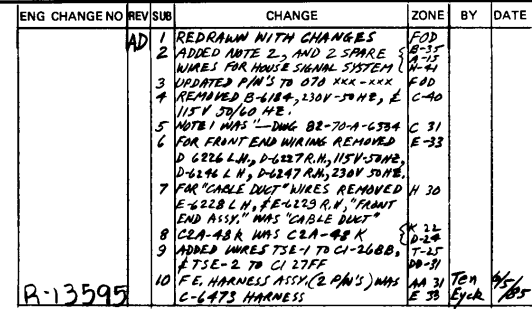 ENG CHANGE NO REV SUB CHANGE ZONE BY DATE
AD 1 REDRAWN WITH CHANGES FOD
2 ADDED NOTE 2, AND 2 SPARE { B-35
WIRES FOR HOUSE SIGNAL SYSTEM A-15
H-41
3 UPDATED P/N'S TO 070 XXX-XXX FOD
4 REMOVED B-6184, 230V-50HZ, & C-40
115V 50/60 HZ.
5 NOTE 1 WAS "—DWG 82-70-A-6534 C 31
6 FOR FRONT END WIRING REMOVED E-33
D 6226 L.H., D-6227 R.H., 115V-50HZ,
D-6246 L H, D-6247 R.H., 230V 50HZ.
7 FOR "CABLE DUCT" WIRES REMOVED H 30
E-6228 L H, & E-6229 R.H, "FRONT
END ASSY." WAS "CABLE DUCT"
8 C2A-48K WAS C2A-48 K { K 22
D-24
9 ADDED WIRES TSE-1 TO C1-26BB, T-25
& TSE-2 TO C1 27FF DD-31
10 F E. HARNESS ASSY. (2 P/N'S) WAS AA 31 Ten 6/5/
R-13595 C-6473 HARNESS E 33 Eyck /85